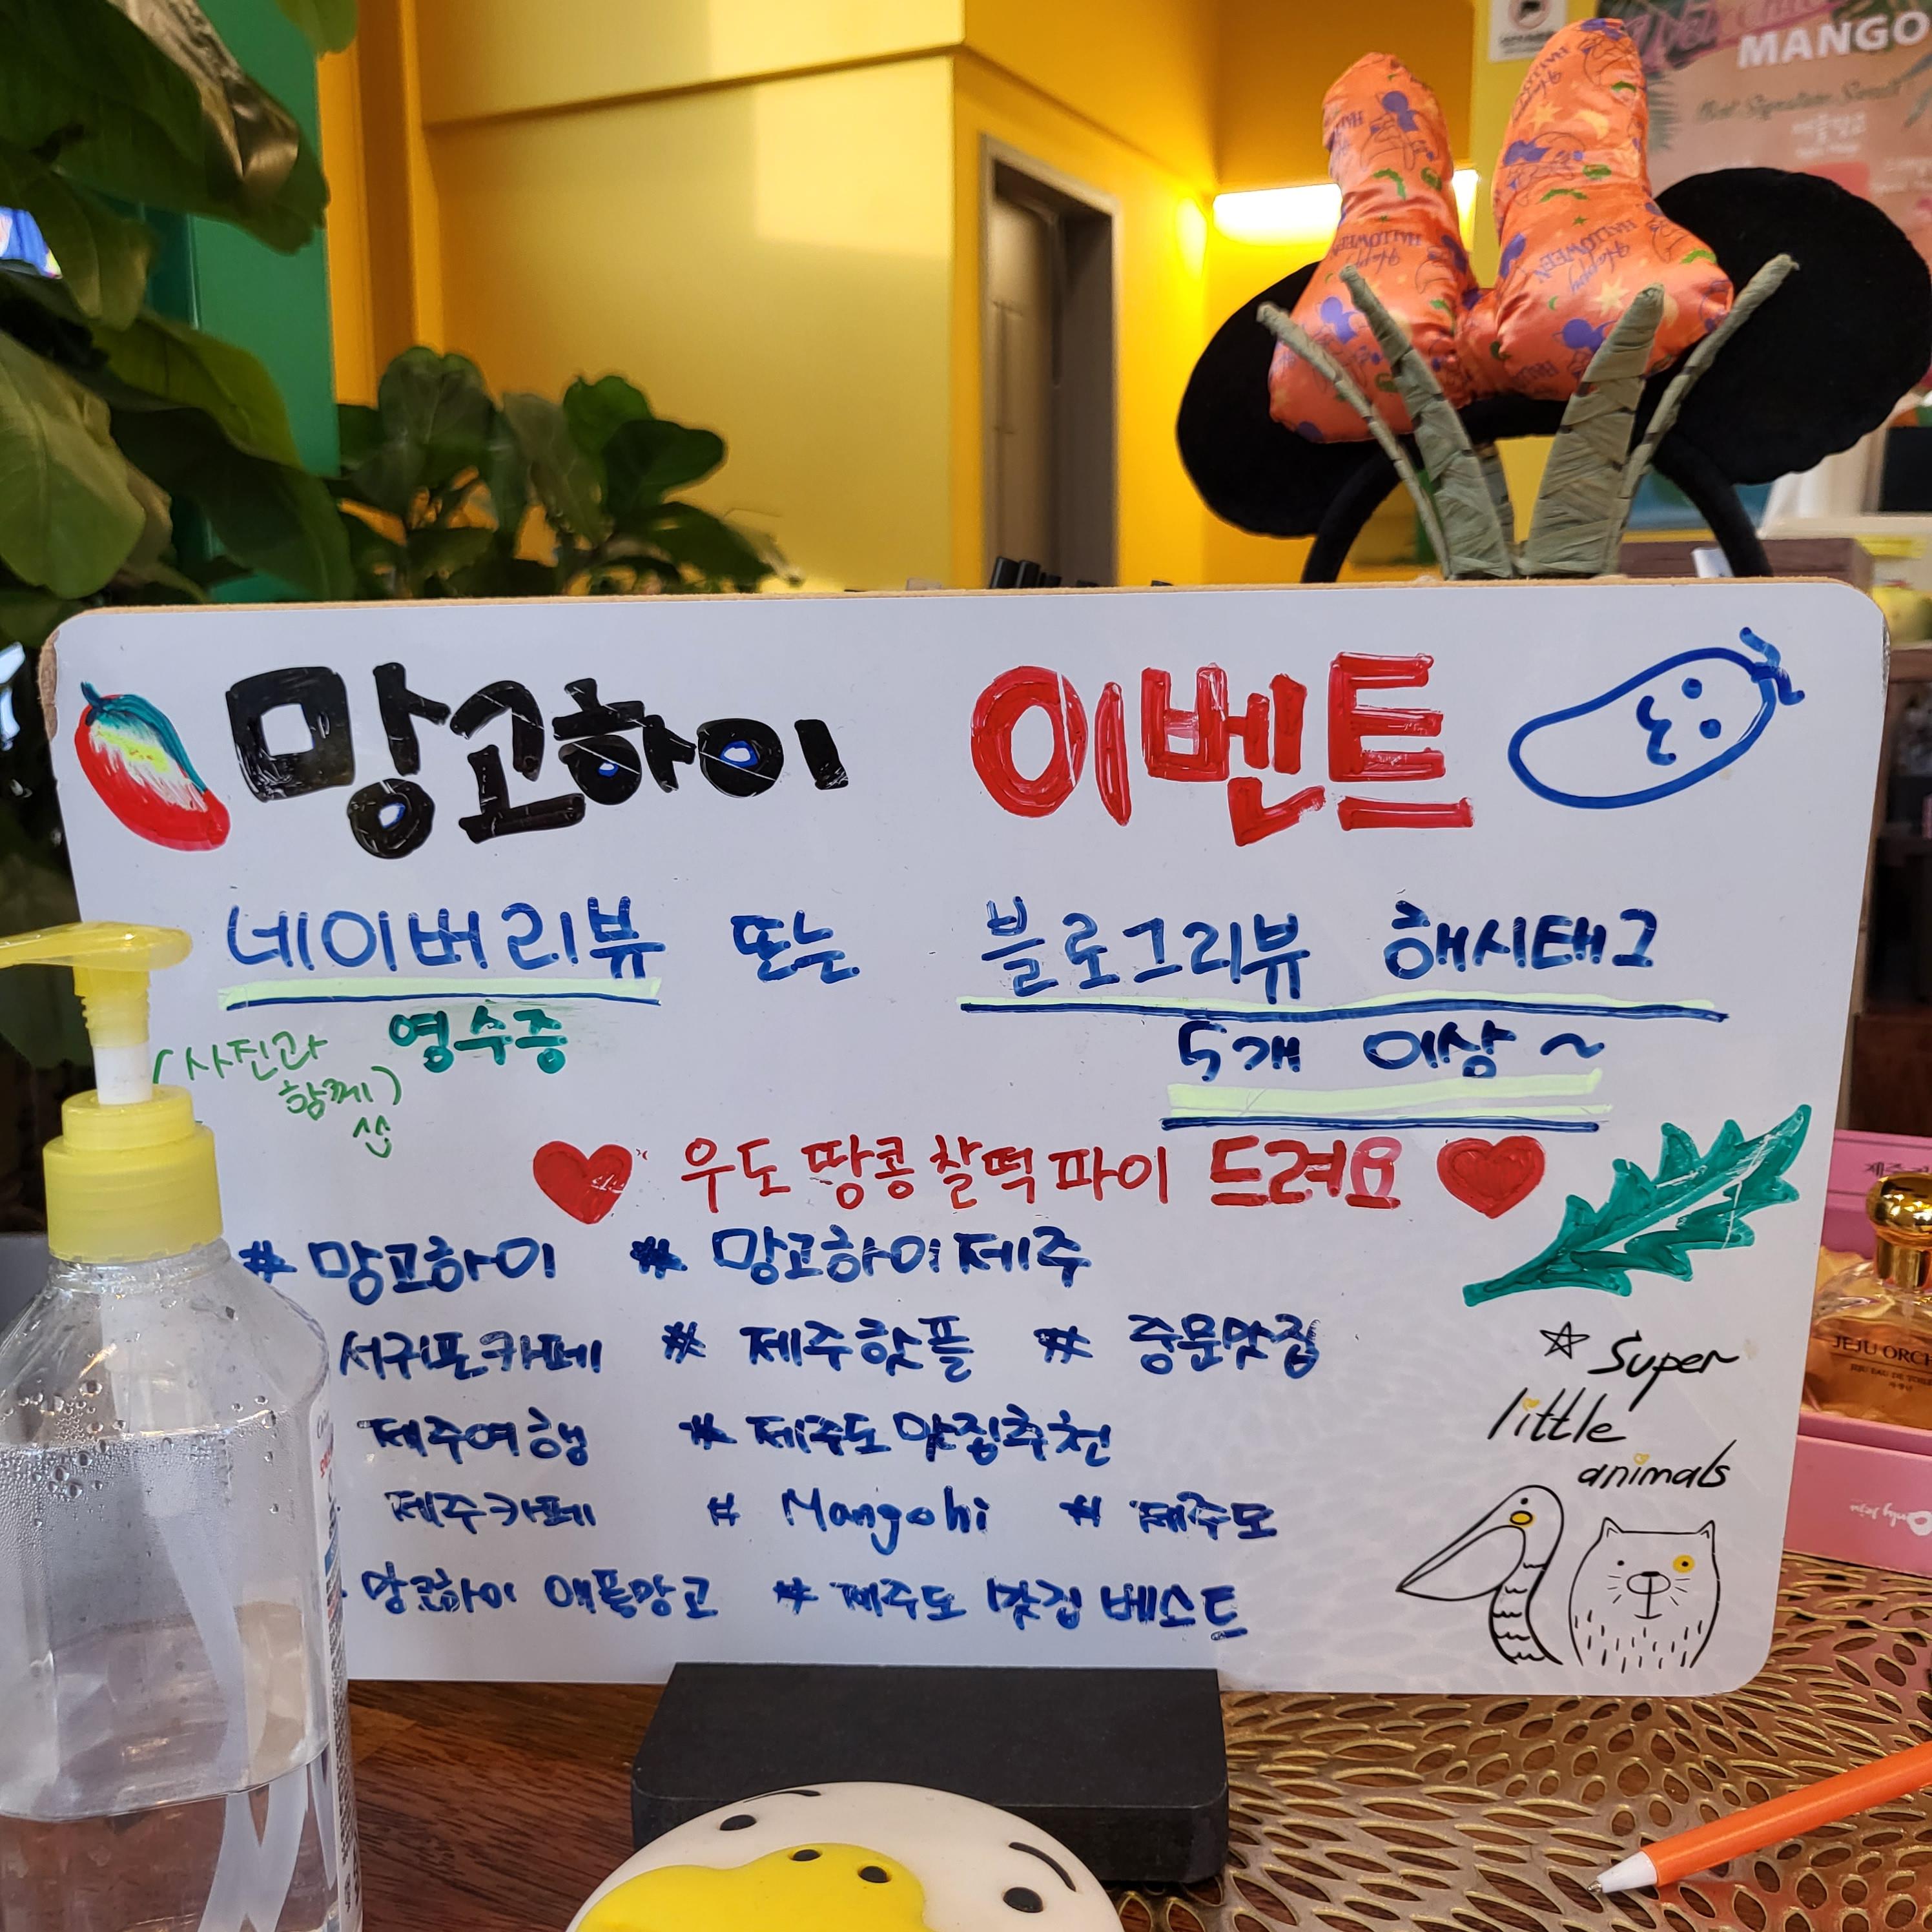 MANGO
망고하이 이벤트
네이버리뷰 또는 블로그리뷰 해시태그
영수증 5개 이상 ~
(사진과
함께)
우도 땅콩찰떡파이 드려요
# 망고하이 # 망고하이제주
서귀포카페 # 제주핫플 # 중문맛집
제주여행 # 제주도맛집추천
제주카페 # Mangohi # 제주도
망고하이 애플망고 # 제주도 맛집 베스트
☆ Super
little
animals
Happy
HALLOWEEN
JEJU ORCH
Only Jeju